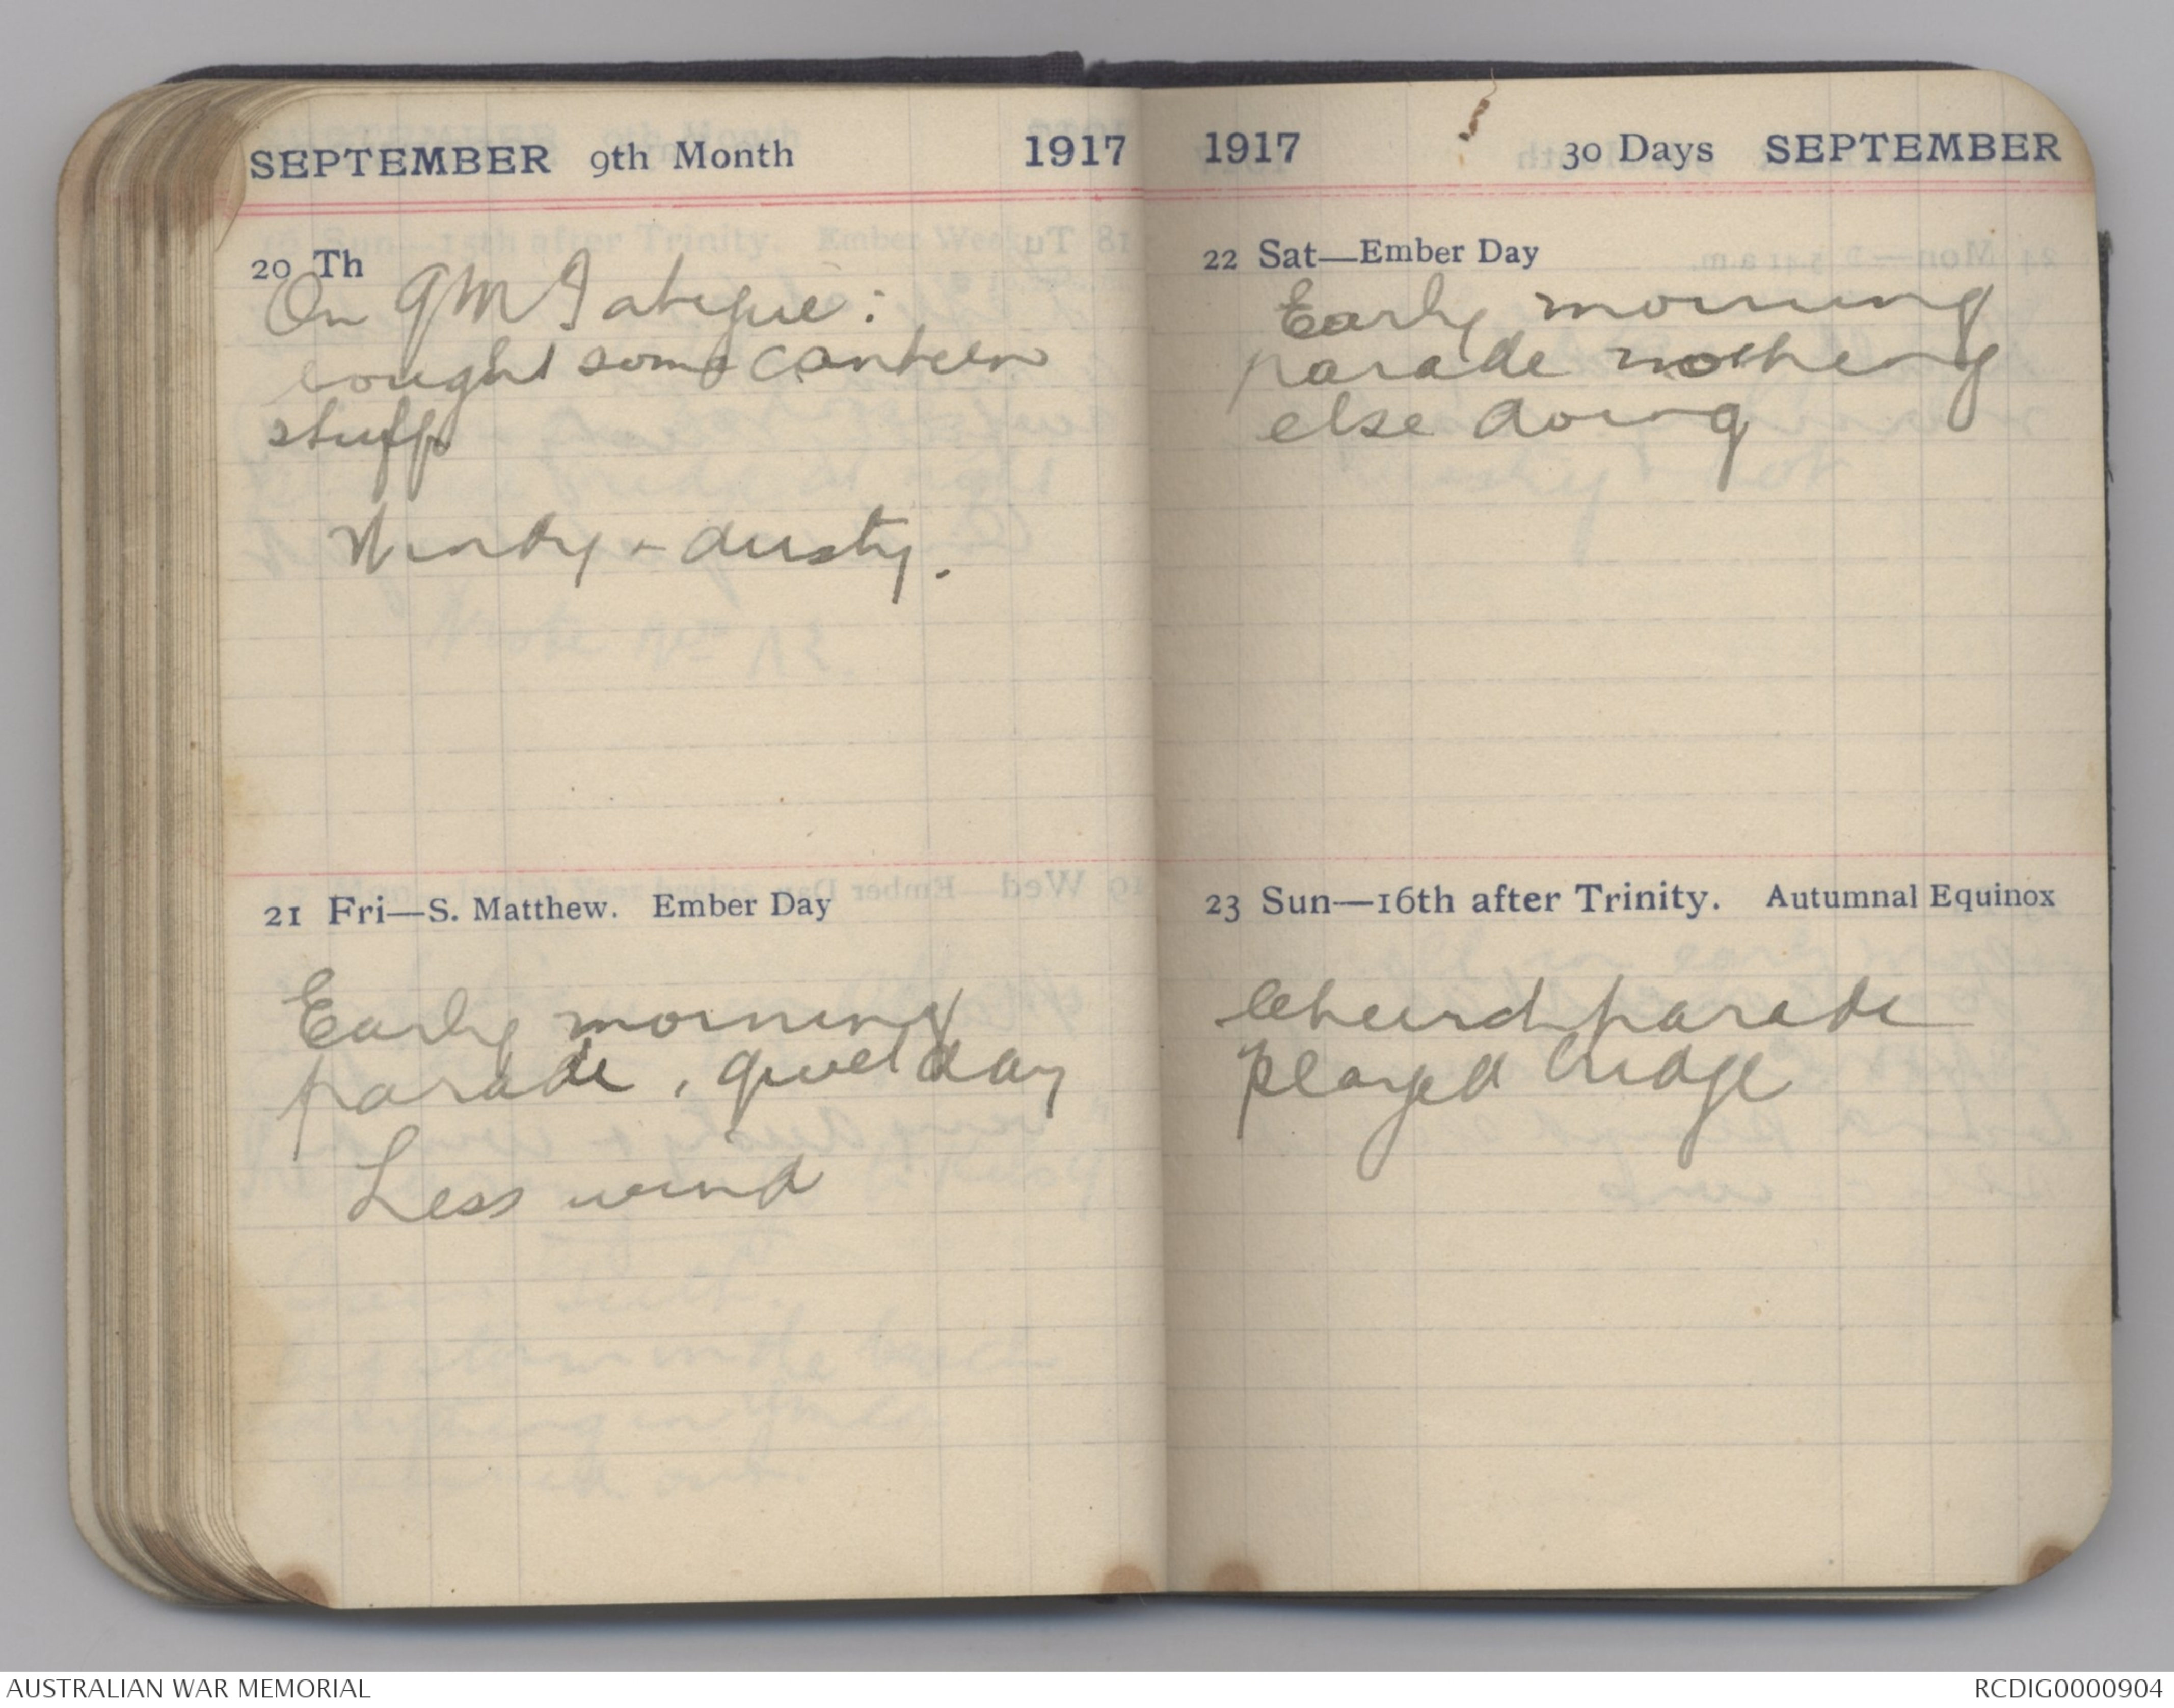 SEPTEMBER 9th Month 1917
20 Th
On QM Fatigue:
bought some canteen
stuff
Windy + dusty.
21 Fri—S. Matthew. Ember Day
Early morning
parade, quiet day
Less wind
1917 30 Days SEPTEMBER
22 Sat—Ember Day
Early morning
parade nothing
else doing
23 Sun—16th after Trinity. Autumnal Equinox
Church parade
Played bridge
AUSTRALIAN WAR MEMORIAL
RCDIG0000904